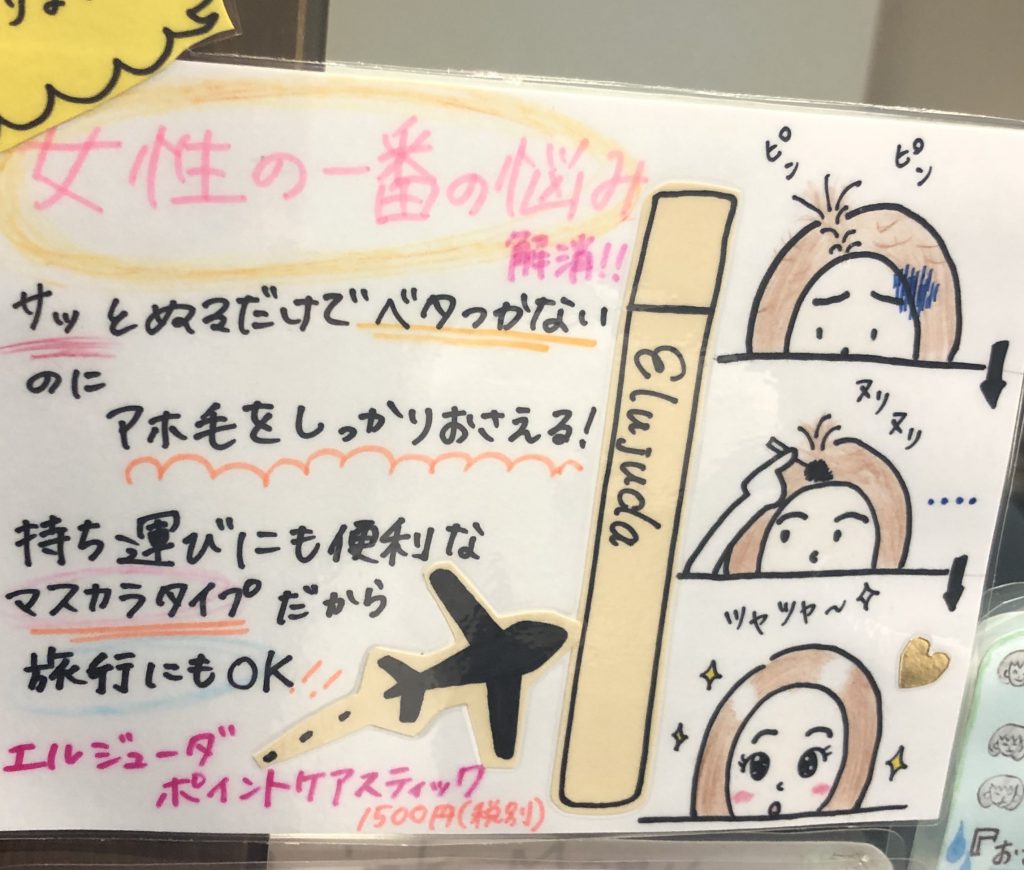 女性の一番の悩み
解消!!
サッとぬるだけでベタつかない
のに
アホ毛をしっかりおさえる!
持ち運びにも便利な
マスカラタイプだから
旅行にもOK!!!
エルジューダ
ポイントケアスティック
1500円(税別)
Elujuda
ピン ピン
ヌリヌリ
ツヤツヤ~
『お